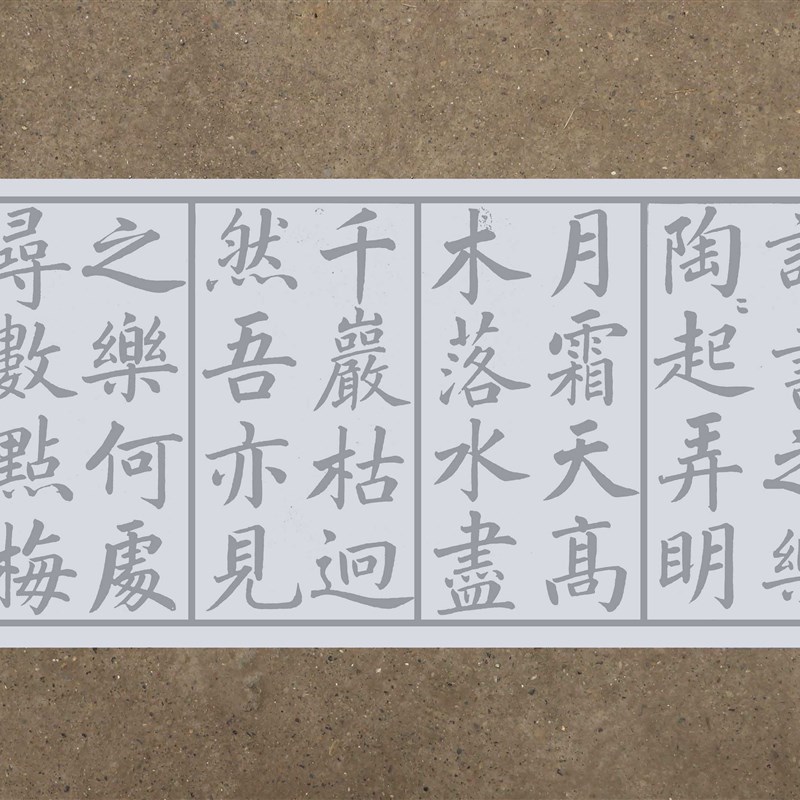 陶〻起弄明
月霜天高
木落水盡
千巖枯迥
然吾亦見
之樂何處
尋數點梅